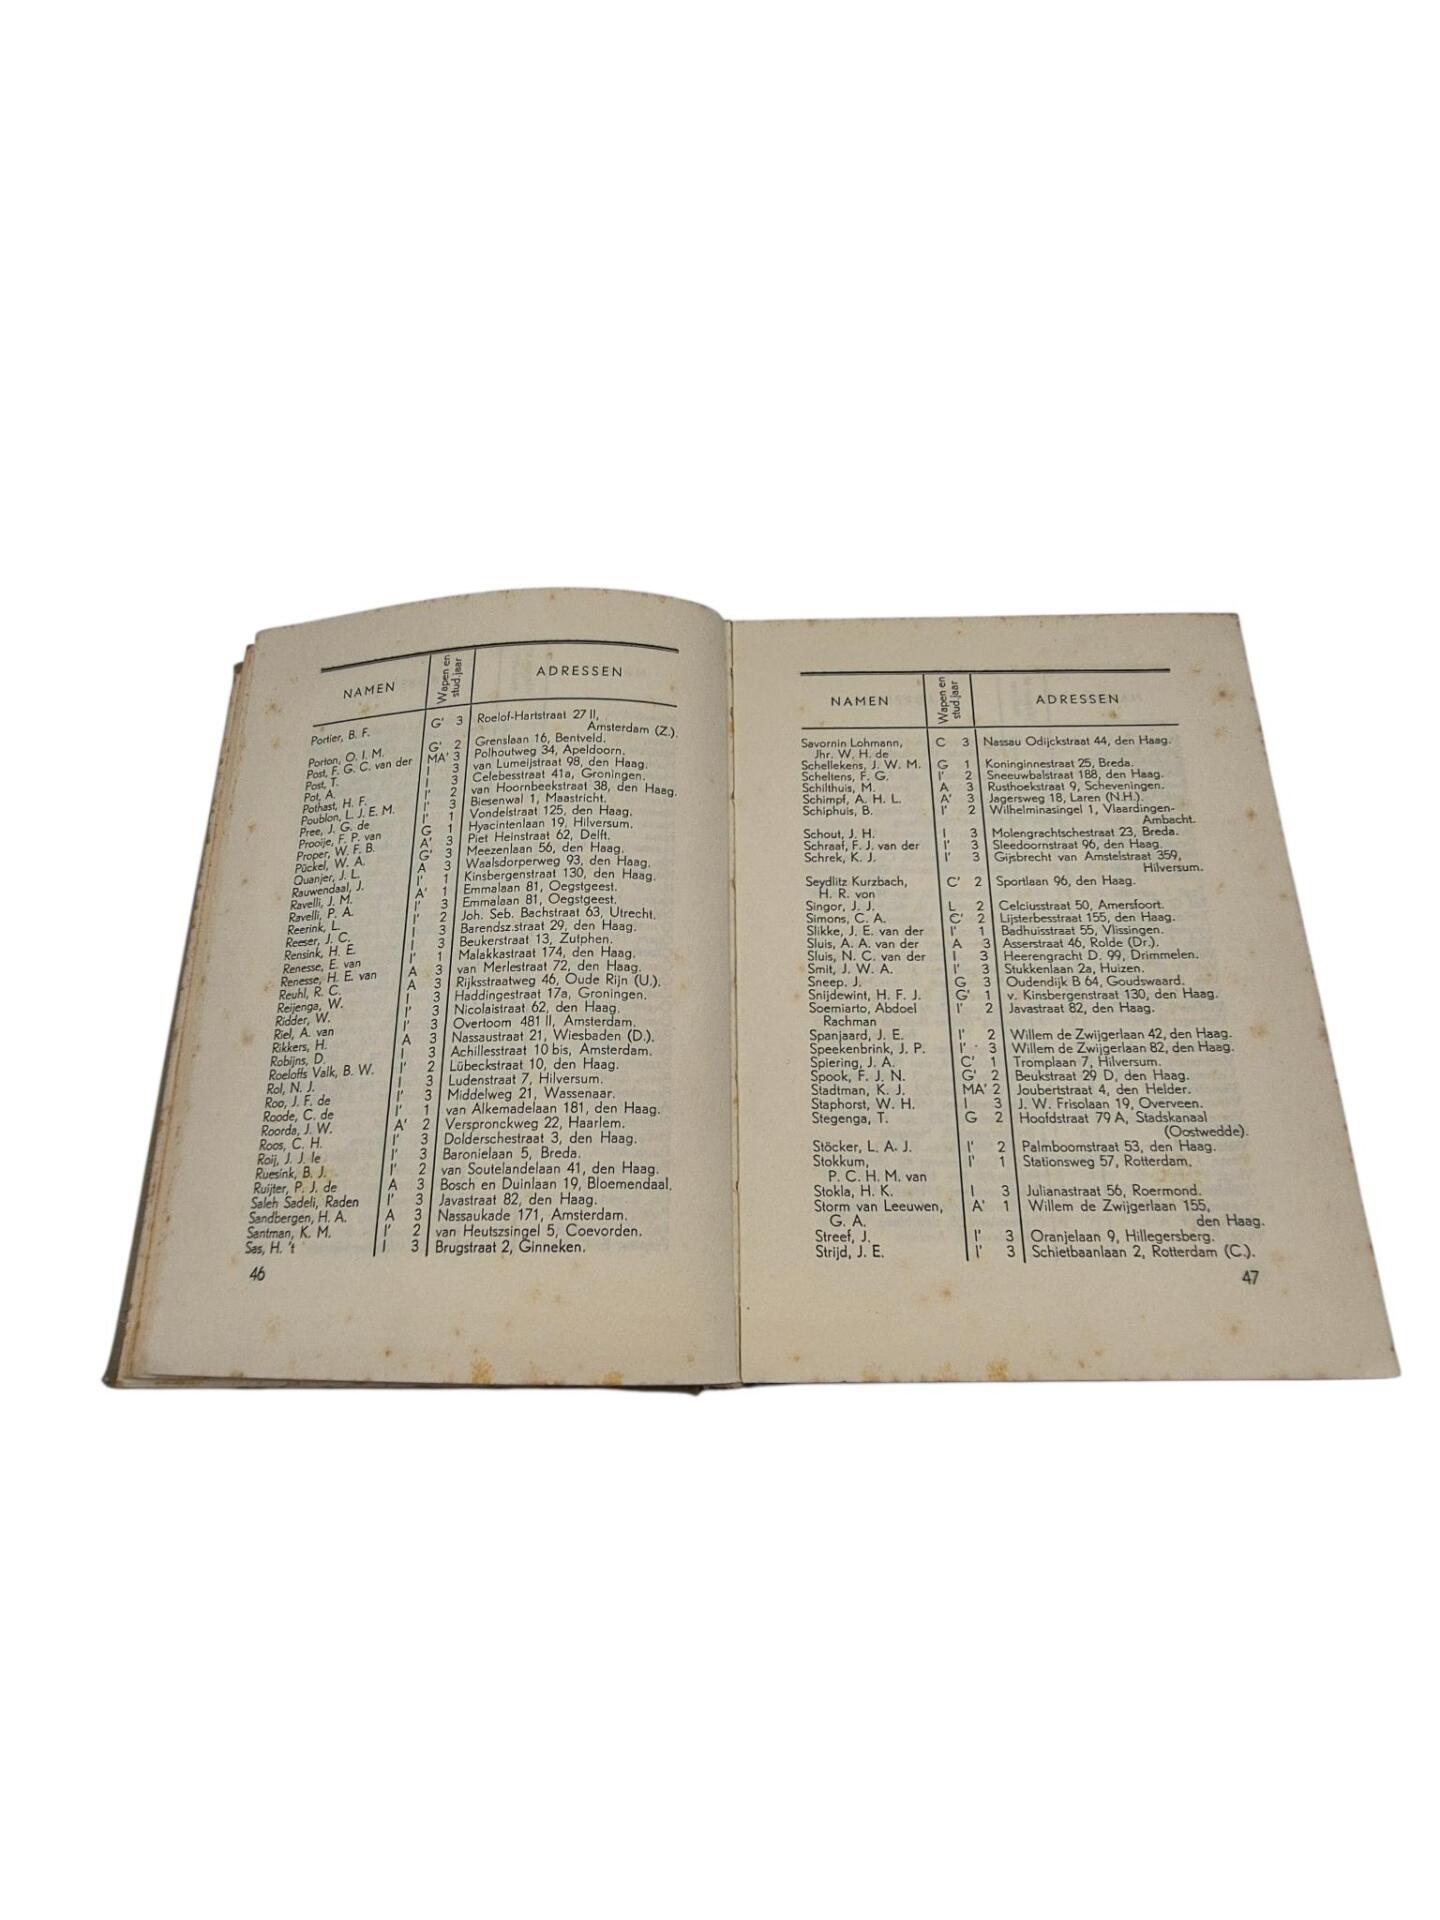 NAMEN Wapen en stud.jaar ADRESSEN
Portier, B. F. G' 3 Roelof-Hartstraat 27 II,
Amsterdam (Z.).
Porton, O. I. M. G' 2 Grenslaan 16, Bentveld.
Post, F. G. C. van der MA' 3 Polhoutweg 34, Apeldoorn.
Post, T. I 3 van Lumeijstraat 98, den Haag.
Pot, A. I 3 Celebesstraat 41a, Groningen.
Pothast, H. F. I' 2 van Hoornbeekstraat 38, den Haag.
Poublon, L. J. E. M. I' 3 Biesenwal 1, Maastricht.
Pree, J. G. de I' 1 Vondelstraat 125, den Haag.
Prooije, F. P. van G 1 Hyacintenlaan 19, Hilversum.
Proper, W. F. B. A' 3 Piet Heinstraat 62, Delft.
Pückel, W. A. G' 3 Meezenlaan 56, den Haag.
Quanjer, J. L. A 3 Waalsdorperweg 93, den Haag.
Rauwendaal, J. I' 1 Kinsbergenstraat 130, den Haag.
Ravelli, J. M. A' 1 Emmalaan 81, Oegstgeest.
Ravelli, P. A. I' 3 Emmalaan 81, Oegstgeest.
Reerink, L. I' 2 Joh. Seb. Bachstraat 63, Utrecht.
Reeser, J. C. I 3 Barendsz.straat 29, den Haag.
Rensink, H. E. I 3 Beukerstraat 13, Zutphen.
Renesse, E. van I' 1 Malakkastraat 174, den Haag.
Renesse, H. E. van A 3 van Merlestraat 72, den Haag.
Reuhl, R. C. A 3 Rijksstraatweg 46, Oude Rijn (U.).
Reijenga, W. I 3 Haddingestraat 17a, Groningen.
Ridder, W. I' 3 Nicolaistraat 62, den Haag.
Riel, A. van I' 3 Overtoom 481 II, Amsterdam.
Rikkers, H. A 3 Nassaustraat 21, Wiesbaden (D.).
Robijns, D. I 3 Achillesstraat 10 bis, Amsterdam.
Roeloffs Valk, B. W. I' 2 Lübeckstraat 10, den Haag.
Rol, N. J. I 3 Ludenstraat 7, Hilversum.
Roo, J. F. de I' 3 Middelweg 21, Wassenaar.
Roode, C. de I' 1 van Alkemadelaan 181, den Haag.
Roorda, J. W. A' 2 Verspronckweg 22, Haarlem.
Roos, C. H. I' 3 Dolderschestraat 3, den Haag.
Roij, J. J. le I' 3 Baronielaan 5, Breda.
Ruesink, B. J. I' 2 van Soutelandelaan 41, den Haag.
Ruijter, P. J. de A 3 Bosch en Duinlaan 19, Bloemendaal.
Saleh Sadeli, Raden I' 3 Javastraat 82, den Haag.
Sandbergen, H. A. A 3 Nassaukade 171, Amsterdam.
Santman, K. M. I' 2 van Heutszsingel 5, Coevorden.
Sas, H. 't I 3 Brugstraat 2, Ginneken.
46
NAMEN Wapen en stud.jaar ADRESSEN
Savornin Lohmann, C 3 Nassau Odijckstraat 44, den Haag.
Jhr. W. H. de
Schellekens, J. W. M. G 1 Koninginnestraat 25, Breda.
Scheltens, F. G. I' 2 Sneeuwbalstraat 188, den Haag.
Schilthuis, M. A 3 Rusthoekstraat 9, Scheveningen.
Schimpf, A. H. L. A' 3 Jagersweg 18, Laren (N.H.).
Schiphuis, B. I' 2 Wilhelminasingel 1, Vlaardingen-
Ambacht.
Schout, J. H. I 3 Molengrachtschestraat 23, Breda.
Schraaf, F. J. van der I' 3 Sleedoornstraat 96, den Haag.
Schrek, K. J. I' 3 Gijsbrecht van Amstelstraat 359,
Hilversum.
Seydlitz Kurzbach, C' 2 Sportlaan 96, den Haag.
H. R. von
Singor, J. J. L 2 Celciusstraat 50, Amersfoort.
Simons, C. A. C' 2 Lijsterbesstraat 155, den Haag.
Slikke, J. E. van der I' 1 Badhuisstraat 55, Vlissingen.
Sluis, A. A. van der A 3 Asserstraat 46, Rolde (Dr.).
Sluis, N. C. van der I 3 Heerengracht D. 99, Drimmelen.
Smit, J. W. A. I' 3 Stukkenlaan 2a, Huizen.
Sneep. J. G 3 Oudendijk B 64, Goudswaard.
Snijdewint, H. F. J. G' 1 v. Kinsbergenstraat 130, den Haag.
Soemiarto, Abdoel I' 2 Javastraat 82, den Haag.
Rachman
Spanjaard, J. E. I' 2 Willem de Zwijgerlaan 42, den Haag.
Speekenbrink, J. P. I' 3 Willem de Zwijgerlaan 82, den Haag.
Spiering, J. A. C' 1 Tromplaan 7, Hilversum.
Spook, F. J. N. G' 2 Beukstraat 29 D, den Haag.
Stadtman, K. J. MA' 2 Joubertstraat 4, den Helder.
Staphorst, W. H. I 3 J. W. Frisolaan 19, Overveen.
Stegenga, T. G 2 Hoofdstraat 79 A, Stadskanaal
(Oostwedde).
Stöcker, L. A. J. I' 2 Palmboomstraat 53, den Haag.
Stokkum, I' 1 Stationsweg 57, Rotterdam.
P. C. H. M. van
Stokla, H. K. I 3 Julianastraat 56, Roermond.
Storm van Leeuwen, A' 1 Willem de Zwijgerlaan 155,
G. A. den Haag.
Streef, J. I' 3 Oranjelaan 9, Hillegersberg.
Strijd, J. E. I' 3 Schietbaanlaan 2, Rotterdam (C.).
47